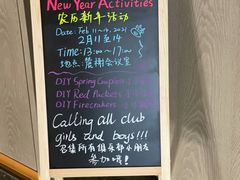 New Year Activities
农历新年活动
Date: Feb 11-14, 2021
2月11至14
Time: 13:00~17:00
地点: 会议室
DIY Spring Couplets
DIY Red Packets
DIY Firecrackers
Calling all club
girls and boys!!!
小朋友
参加哦!